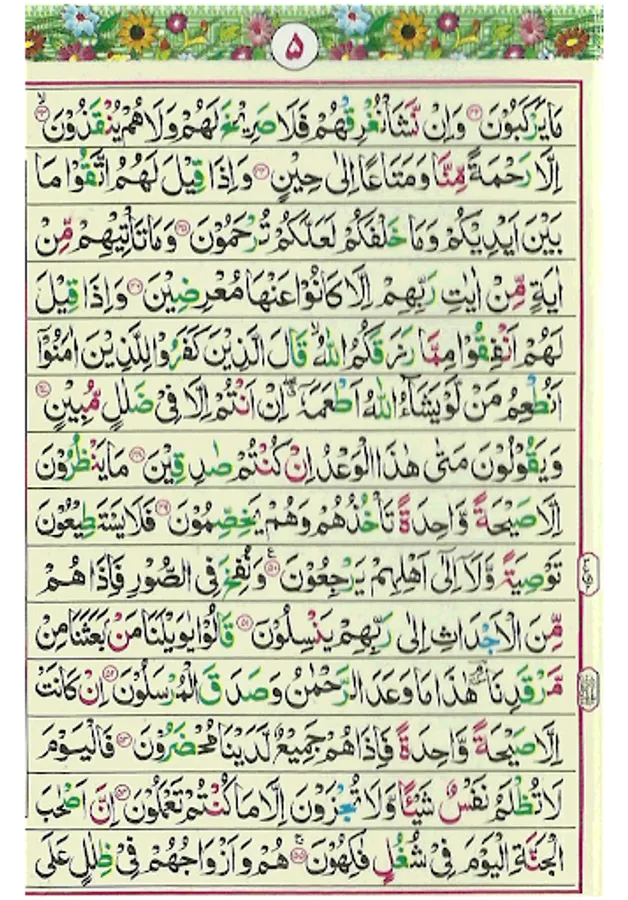 ۵
مَا يَرْكَبُوْنَ ۴۲ وَاِنْ نَّشَاْ نُغْرِقْهُمْ فَلَا صَرِيْخَ لَهُمْ وَلَا هُمْ يُنْقَذُوْنَ ۴۳ ۙ
اِلَّا رَحْمَةً مِّنَّا وَمَتَاعًا اِلٰى حِيْنٍ ۴۴ وَاِذَا قِيْلَ لَهُمُ اتَّقُوْا مَا
بَيْنَ اَيْدِيْكُمْ وَمَا خَلْفَكُمْ لَعَلَّكُمْ تُرْحَمُوْنَ ۴۵ وَمَا تَاْتِيْهِمْ مِّنْ
اٰيَةٍ مِّنْ اٰيٰتِ رَبِّهِمْ اِلَّا كَانُوْا عَنْهَا مُعْرِضِيْنَ ۴۶ وَاِذَا قِيْلَ
لَهُمْ اَنْفِقُوْا مِمَّا رَزَقَكُمُ اللّٰهُ ۙ قَالَ الَّذِيْنَ كَفَرُوْا لِلَّذِيْنَ اٰمَنُوْۤا
اَنُطْعِمُ مَنْ لَّوْ يَشَآءُ اللّٰهُ اَطْعَمَهٗۤ ۖ اِنْ اَنْتُمْ اِلَّا فِيْ ضَلٰلٍ مُّبِيْنٍ ۴۷
وَيَقُوْلُوْنَ مَتٰى هٰذَا الْوَعْدُ اِنْ كُنْتُمْ صٰدِقِيْنَ ۴۸ مَا يَنْظُرُوْنَ
اِلَّا صَيْحَةً وَّاحِدَةً تَاْخُذُهُمْ وَهُمْ يَخِصِّمُوْنَ ۴۹ فَلَا يَسْتَطِيْعُوْنَ
تَوْصِيَةً وَّلَاۤ اِلٰۤى اَهْلِهِمْ يَرْجِعُوْنَ ۵۰ ع وَنُفِخَ فِي الصُّوْرِ فَاِذَا هُمْ
مِّنَ الْاَجْدَاثِ اِلٰى رَبِّهِمْ يَنْسِلُوْنَ ۵۱ قَالُوْا يٰوَيْلَنَا مَنْۢ بَعَثَنَا مِنْ
مَّرْقَدِنَا هٰذَا مَا وَعَدَ الرَّحْمٰنُ وَصَدَقَ الْمُرْسَلُوْنَ ۵۲ اِنْ كَانَتْ
اِلَّا صَيْحَةً وَّاحِدَةً فَاِذَا هُمْ جَمِيْعٌ لَّدَيْنَا مُحْضَرُوْنَ ۵۳ فَالْيَوْمَ
لَا تُظْلَمُ نَفْسٌ شَيْـًٔا وَّلَا تُجْزَوْنَ اِلَّا مَا كُنْتُمْ تَعْمَلُوْنَ ۵۴ اِنَّ اَصْحٰبَ
الْجَنَّةِ الْيَوْمَ فِيْ شُغُلٍ فٰكِهُوْنَ ۵۵ ۚ هُمْ وَاَزْوَاجُهُمْ فِيْ ظِلٰلٍ عَلَى